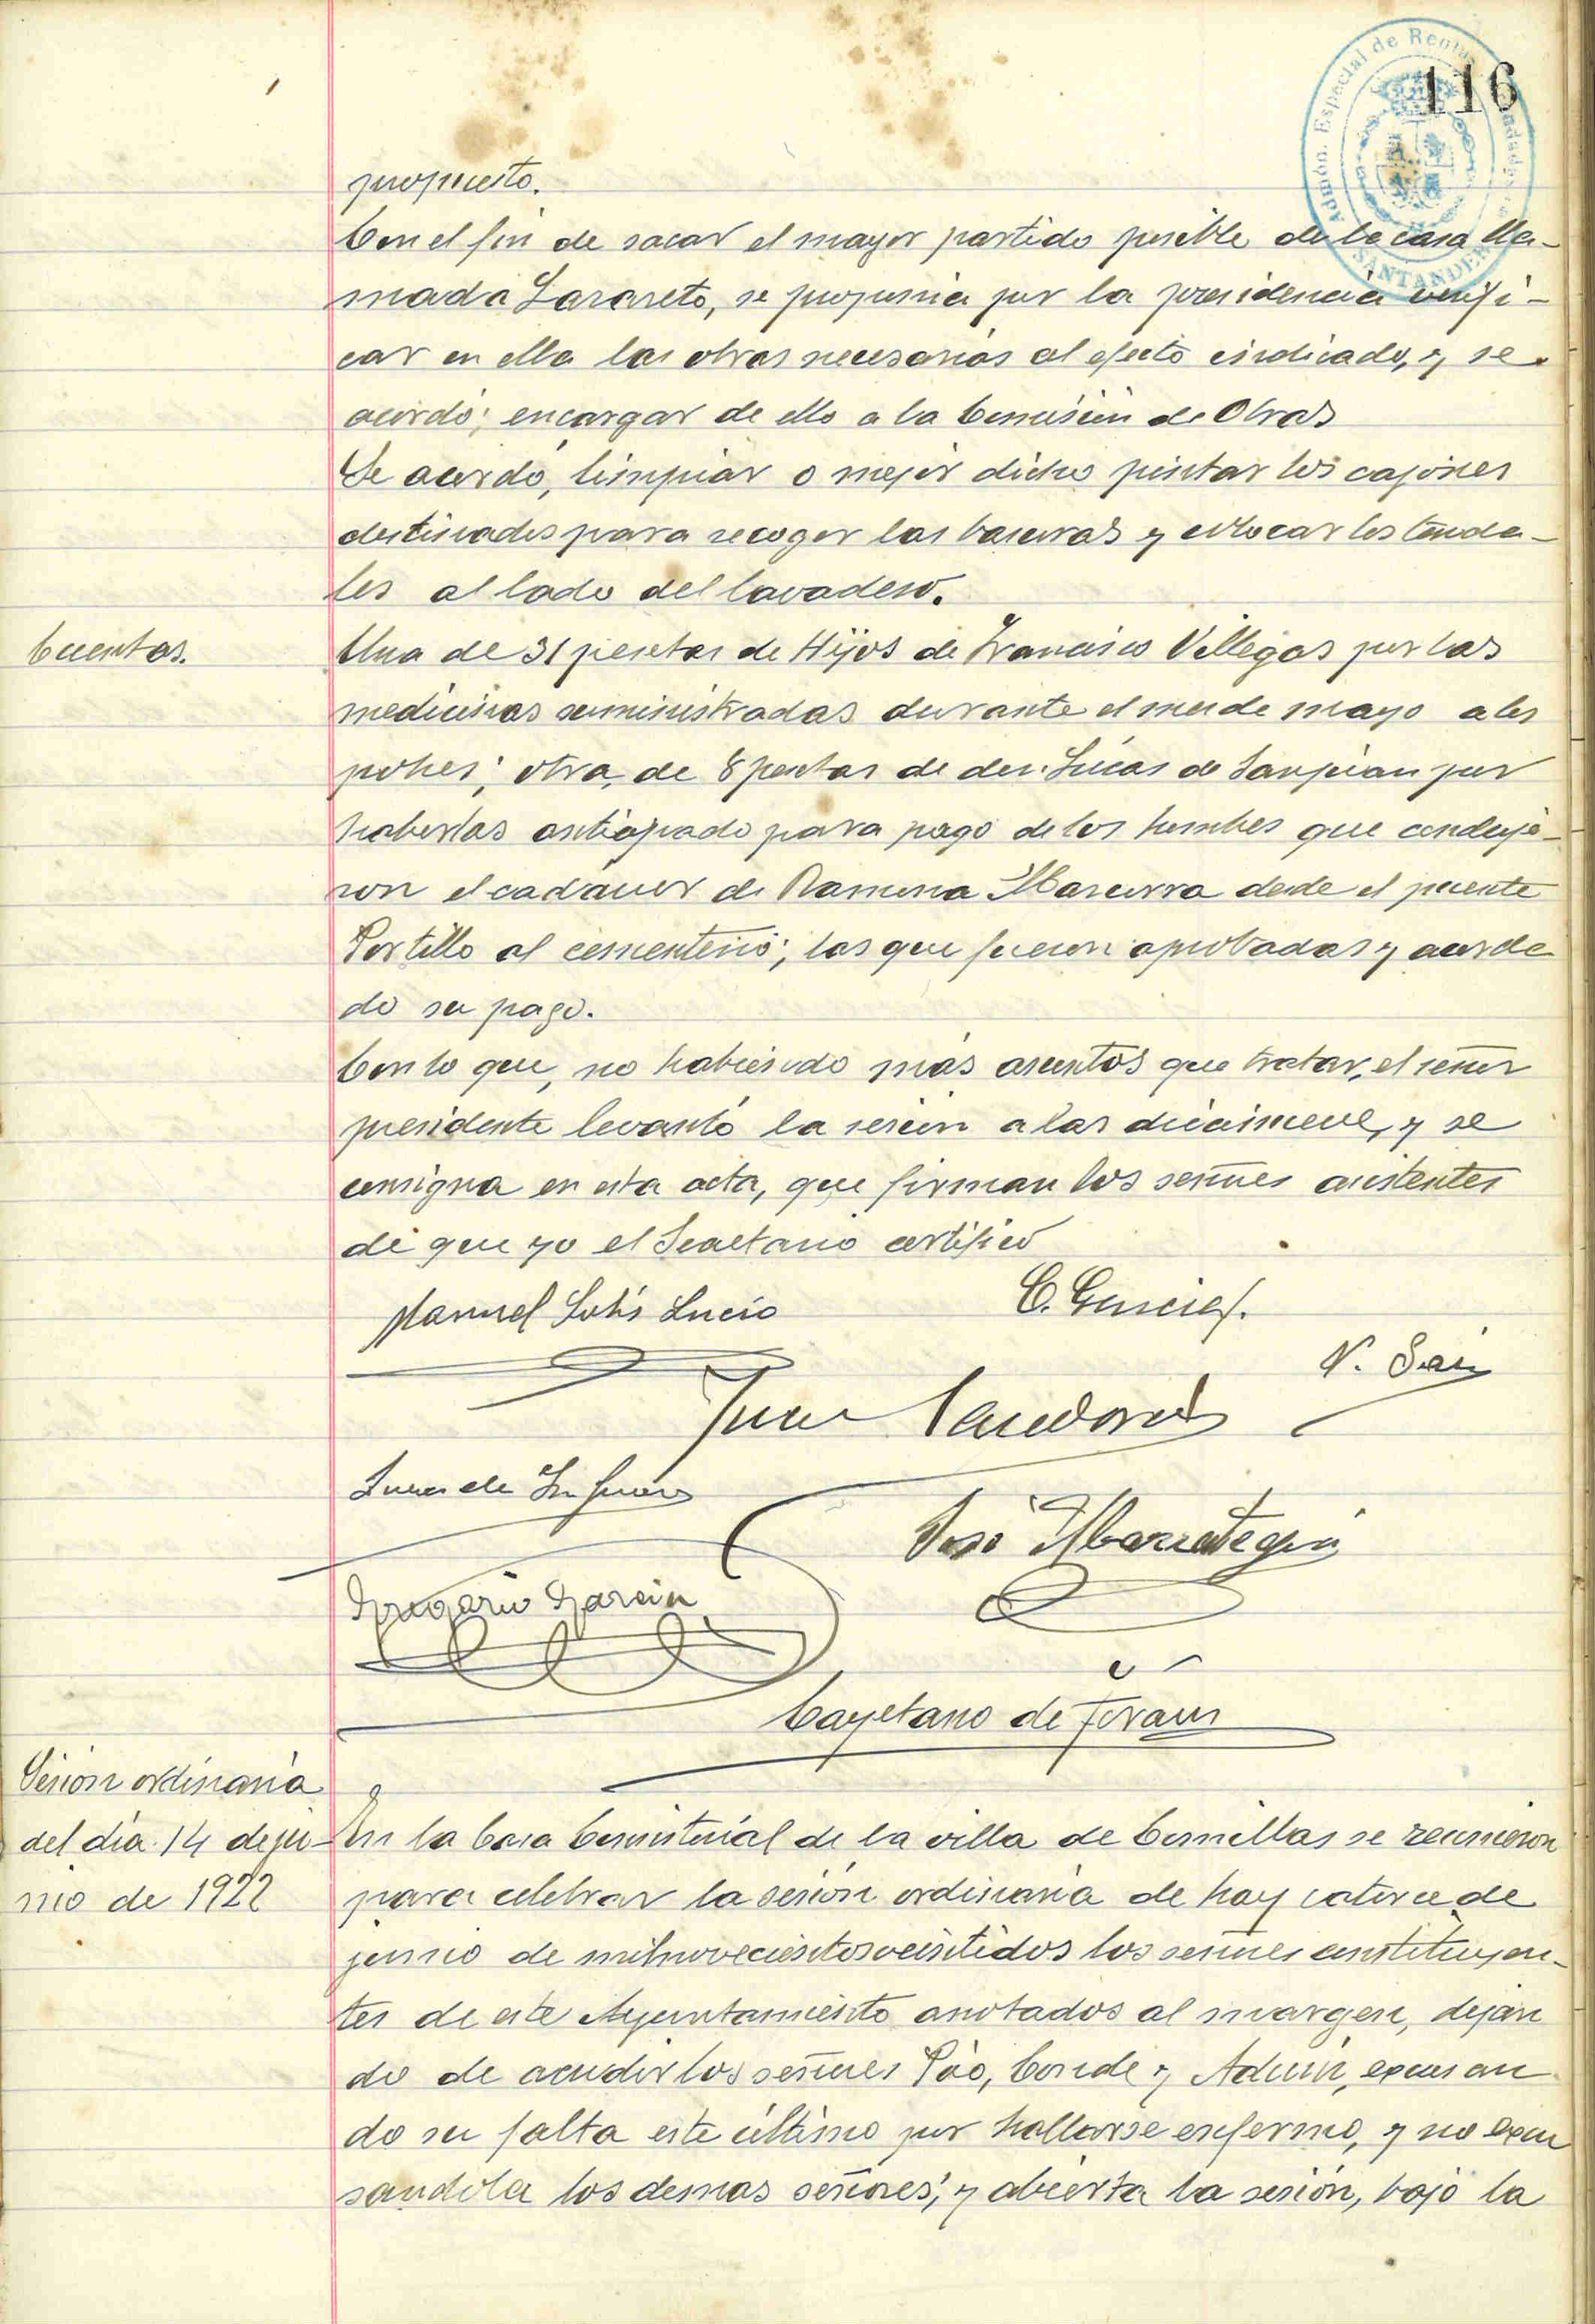 116
Admón. Especial de Rentas
SANTANDER
propuesto.
Con el fin de sacar el mayor partido posible de la casa lla-
mada Lazareto, se proponia por la presidencia verifi-
car en ella las obras necesarias al efecto indicado, y se
acordó; encargar de ello a la Comisión de Obras
Se acordó, limpiar o mejor dicho pintar los cajones
destinados para recoger las basuras y colocar los tenda-
les al lado del lavadero.
Cuentas.
Una de 31 pesetas de Hijos de Francisco Villegas por las
medicinas suministradas durante el mes de mayo a los
pobres; otra, de 8 pesetas de don Lúcas de por
haberlas anticipado para pago de los hombres que conduje-
ron el cadáver de Ramona desde el puente
Portillo al cementerio; las que fueron aprobadas y acorda
do su pago.
Con lo que, no habiendo más asuntos que tratar, el señor
presidente levantó la sesión a las diecinueve, y se
consigna en esta acta, que firman los señores asistentes
de que yo el Secretario certifico
Manuel Solís Lucio
C. García
V.
Juan Sandoval
Lucas de
José
Gregorio García
Cayetano de Terán
Sesión ordinaria
del día 14 de ju-
nio de 1922
En la Casa Consistorial de la villa de Comillas se reunieron
para celebrar la sesión ordinaria de hoy catorce de
junio de milnovecientosveintidos los señores constituyen-
tes de este Ayuntamiento anotados al margen, dejan
do de acudir los señores Pío, Conde y excusan
do su falta este último por hallarse enfermo, y no excu
sandola los demas señores; y abierta la sesión, bajo la